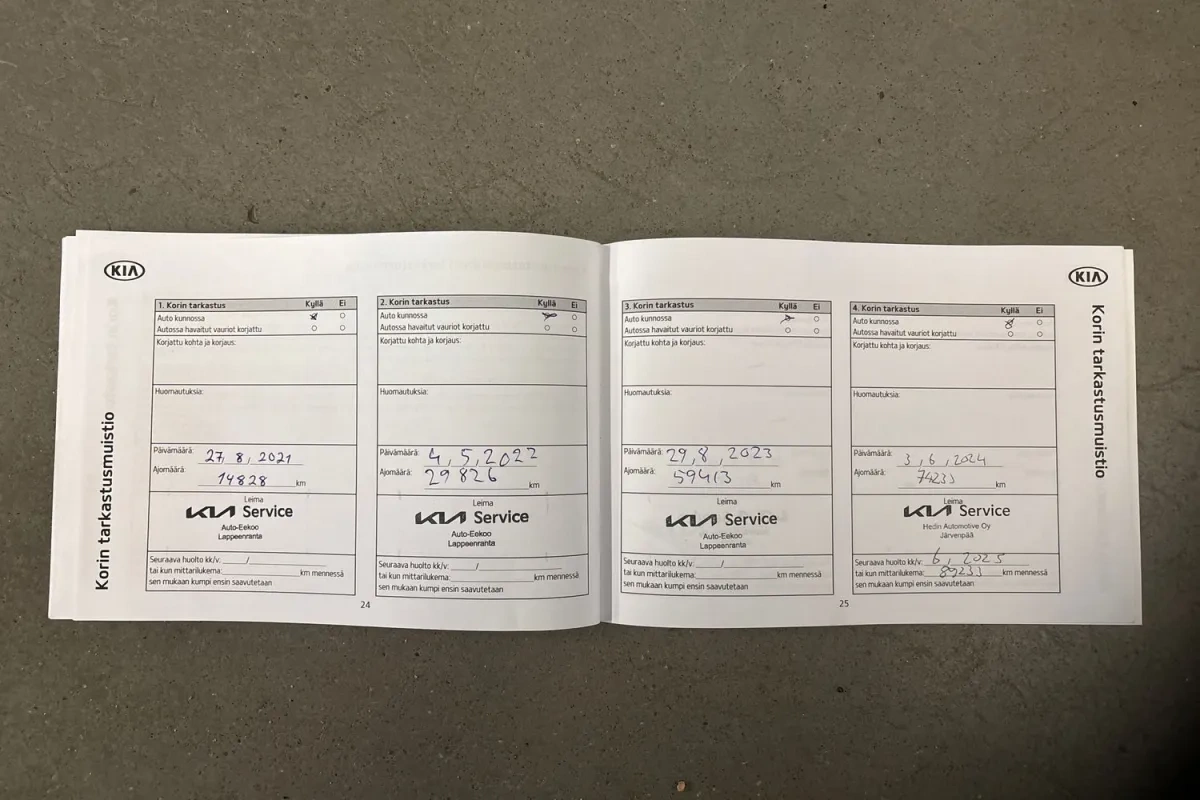 KIA
Korin tarkastusmuistio
1. Korin tarkastus Kyllä Ei
Auto kunnossa
Autossa havaitut vauriot korjattu
Korjattu kohta ja korjaus:
Huomautuksia:
Päivämäärä: 27, 8, 2021
Ajomäärä: 14828 km
Leima
KIA Service
Auto-Eekoo
Lappeenranta
Seuraava huolto kk/v. /
tai kun mittarilukema: km mennessä
sen mukaan kumpi ensin saavutetaan
2. Korin tarkastus Kyllä Ei
Auto kunnossa
Autossa havaitut vauriot korjattu
Korjattu kohta ja korjaus:
Huomautuksia:
Päivämäärä: 4, 5, 2022
Ajomäärä: 29826 km
Leima
KIA Service
Auto-Eekoo
Lappeenranta
Seuraava huolto kk/v. /
tai kun mittarilukema: km mennessä
sen mukaan kumpi ensin saavutetaan
24
3. Korin tarkastus Kyllä Ei
Auto kunnossa
Autossa havaitut vauriot korjattu
Korjattu kohta ja korjaus:
Huomautuksia:
Päivämäärä: 29, 8, 2023
Ajomäärä: 59413 km
Leima
KIA Service
Auto-Eekoo
Lappeenranta
Seuraava huolto kk/v. /
tai kun mittarilukema: km mennessä
sen mukaan kumpi ensin saavutetaan
4. Korin tarkastus Kyllä Ei
Auto kunnossa
Autossa havaitut vauriot korjattu
Korjattu kohta ja korjaus:
Huomautuksia:
Päivämäärä: 3, 6, 2024
Ajomäärä: 74233 km
Leima
KIA Service
Hedin Automotive Oy
Järvenpää
Seuraava huolto kk/v. 6, 2025
tai kun mittarilukema: 89233 km mennessä
sen mukaan kumpi ensin saavutetaan
25
KIA
Korin tarkastusmuistio